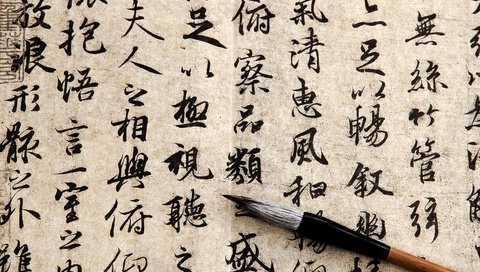 無絲竹管弦
亦足以暢敘幽
氣清惠風和暢
俯察品類之盛
足以極視聽之
夫人之相與俯仰
懷抱悟言一室之內
放浪形骸之外雖